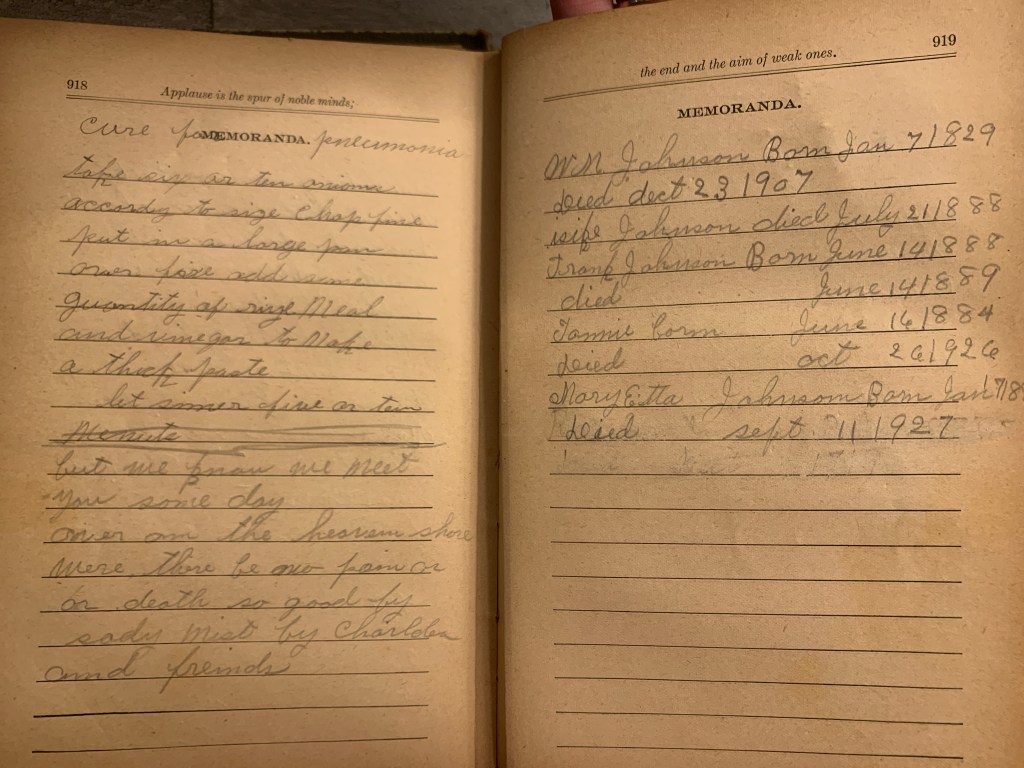 918
Applause is the spur of noble minds;
MEMORANDA.
Cure for pneumonia
take six or ten onions
accordy to size Chop fine
put in a large pan
over fire add same
quantity of rye Meal
and vinegar to Make
a thick paste
let simer five or ten
Menuts
but we know we meet
you some day
over on the heavem shore
were there be no pain or
or death so good by
sady mist by Charlden
and freinds
919
the end and the aim of weak ones.
MEMORANDA.
WM Johnson Born Jan 7 1829
Died dect 23 1907
wife Johnson died July 21 1888
Frank Johnson Born June 14 1888
died June 14 1889
Fannie Born June 16 1884
Died oct 26 1926
Mary Etta Johnson Born Jan 7 18
Died sept 11 1927